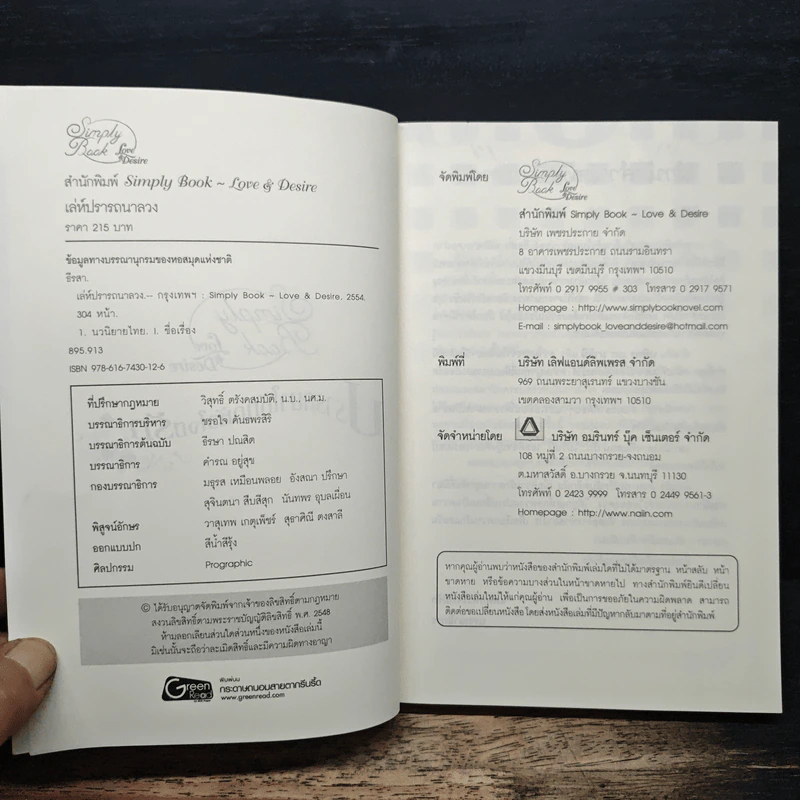 Simply Book Love & Desire
สำนักพิมพ์ Simply Book ~ Love & Desire
เล่ห์ปรารถนาลวง
ราคา 215 บาท
ข้อมูลทางบรรณานุกรมของหอสมุดแห่งชาติ
ธีรสา.
เล่ห์ปรารถนาลวง.-- กรุงเทพฯ : Simply Book ~ Love & Desire, 2554.
304 หน้า.
1. นวนิยายไทย. I. ชื่อเรื่อง
895.913
ISBN 978-616-7430-12-6
ที่ปรึกษากฎหมาย วิสุทธิ์ ตรังคสมบัติ, น.บ., นศ.ม.
บรรณาธิการบริหาร ขรอใจ คันธพรสิริ
บรรณาธิการต้นฉบับ ธีรษา ปณสิต
บรรณาธิการ คำรณ อยู่สุข
กองบรรณาธิการ มธุรส เหมือนพลอย อังสณา ปรึกษา
สุจินตนา สืบสีสุก นันทพร อุบลเผื่อน
พิสูจน์อักษร วาสุเทพ เกตุเพ็ชร์ สุธาศิณี ดงสาลี
ออกแบบปก สีน้ำสีรุ้ง
ศิลปกรรม Prographic
© ได้รับอนุญาตจัดพิมพ์จากเจ้าของลิขสิทธิ์ตามกฎหมาย
สงวนลิขสิทธิ์ตามพระราชบัญญัติลิขสิทธิ์ พ.ศ. 2548
ห้ามลอกเลียนส่วนใดส่วนหนึ่งของหนังสือเล่มนี้
มิเช่นนั้นจะถือว่าละเมิดสิทธิ์และมีความผิดทางอาญา
Green Read
พิมพ์บน
กระดาษถนอมสายตากรีนรี้ด
www.greenread.com
จัดพิมพ์โดย Simply Book Love & Desire
สำนักพิมพ์ Simply Book ~ Love & Desire
บริษัท เพชรประกาย จำกัด
8 อาคารเพชรประกาย ถนนรามอินทรา
แขวงมีนบุรี เขตมีนบุรี กรุงเทพฯ 10510
โทรศัพท์ 0 2917 9955 # 303 โทรสาร 0 2917 9571
Homepage : http://www.simplybooknovel.com
E-mail : simplybook_loveanddesire@hotmail.com
พิมพ์ที่ บริษัท เลิฟแอนด์ลิพเพรส จำกัด
969 ถนนพระยาสุเรนทร์ แขวงบางชัน
เขตคลองสามวา กรุงเทพฯ 10510
จัดจำหน่ายโดย บริษัท อมรินทร์ บุ๊ค เซ็นเตอร์ จำกัด
108 หมู่ที่ 2 ถนนบางกรวย-จงถนอม
ต.มหาสวัสดิ์ อ.บางกรวย จ.นนทบุรี 11130
โทรศัพท์ 0 2423 9999 โทรสาร 0 2449 9561-3
Homepage : http://www.naiin.com
หากคุณผู้อ่านพบว่าหนังสือของสำนักพิมพ์เล่มใดที่ไม่ได้มาตรฐาน หน้าสลับ หน้า
ขาดหาย หรือข้อความบางส่วนในหน้าขาดหายไป ทางสำนักพิมพ์ยินดีเปลี่ยน
หนังสือเล่มใหม่ให้แก่คุณผู้อ่าน เพื่อเป็นการขออภัยในความผิดพลาด สามารถ
ติดต่อขอเปลี่ยนหนังสือ โดยส่งหนังสือเล่มที่มีปัญหากลับมาตามที่อยู่สำนักพิมพ์